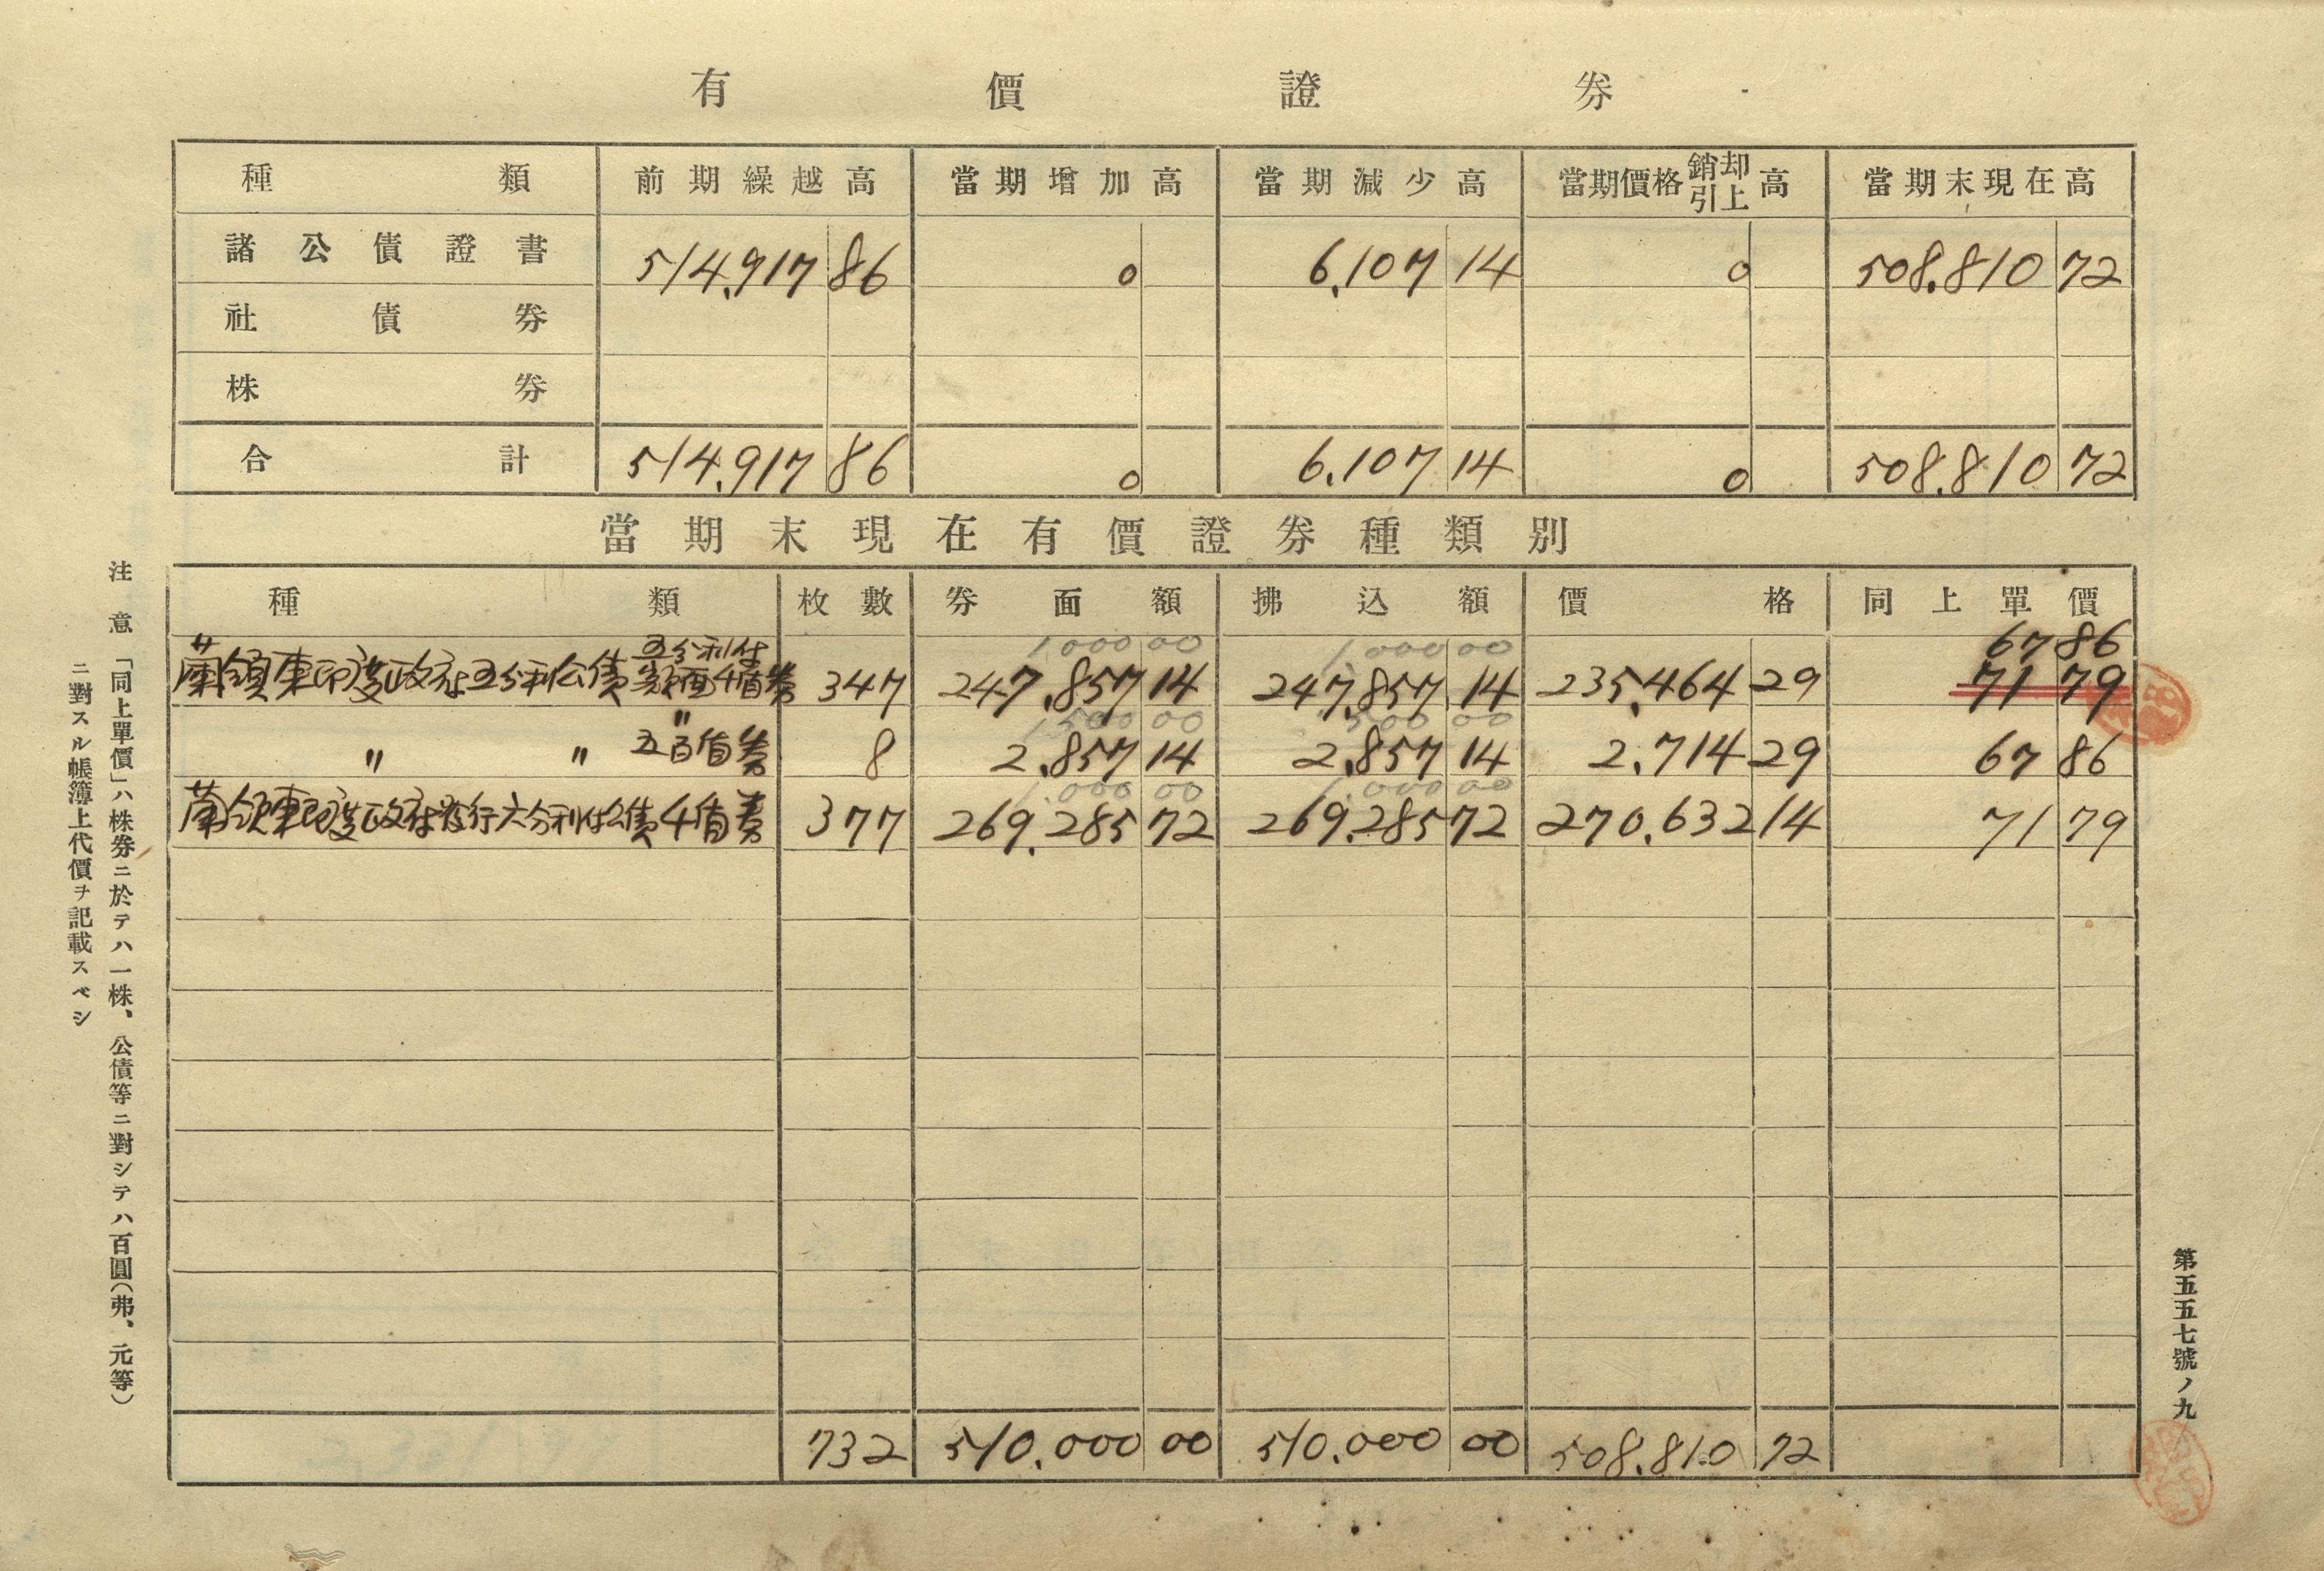 有價證券
種類 前期繰越高 當期增加高 當期減少高 當期價格銷却引上高 當期末現在高
諸公債證書 514,917 86 0 6,107 14 0 508,810 72
社債券
株券
合計 514,917 86 0 6,107 14 0 508,810 72
當期末現在有價證券種類別
種類 枚數 券面額 拂込額 價格 同上單價
五分利付 1000 00 1,000 00 67 86
蘭領東印度政府五分利公債額面千盾券 347 247,857 14 247,857 14 235,464 29 71 79
〃 500 00 500 00
〃 〃 五百盾券 8 2,857 14 2,857 14 2,714 29 67 86
1,000 00 1,000 00
蘭領東印度政府發行六分利付公債千盾券 377 269,285 72 269,285 72 270,632 14 71 79
732 510,000 00 510,000 00 508,810 72
注意「同上單價」ハ株券ニ於テハ一株、公債等ニ對シテハ百圓(弗、元等)
ニ對スル帳簿上代價ヲ記載スベシ
第五五七號ノ九